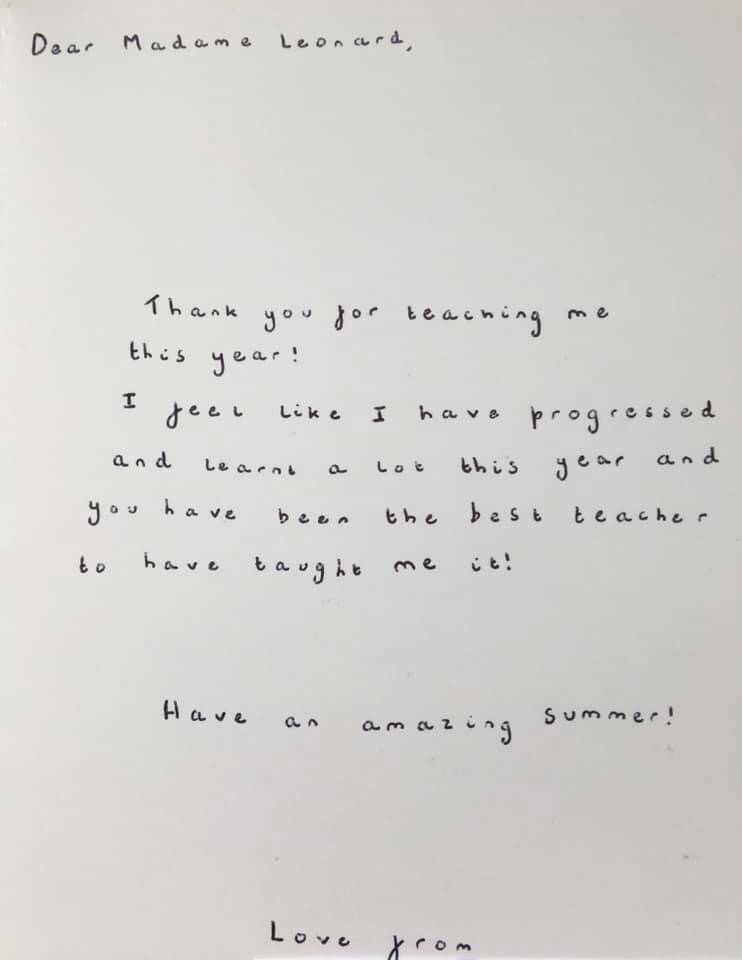 Dear Madame Leonard,
Thank you for teaching me
this year!
I feel like I have progressed
and learnt a lot this year and
you have been the best teacher
to have taught me it!
Have an amazing summer!
Love from